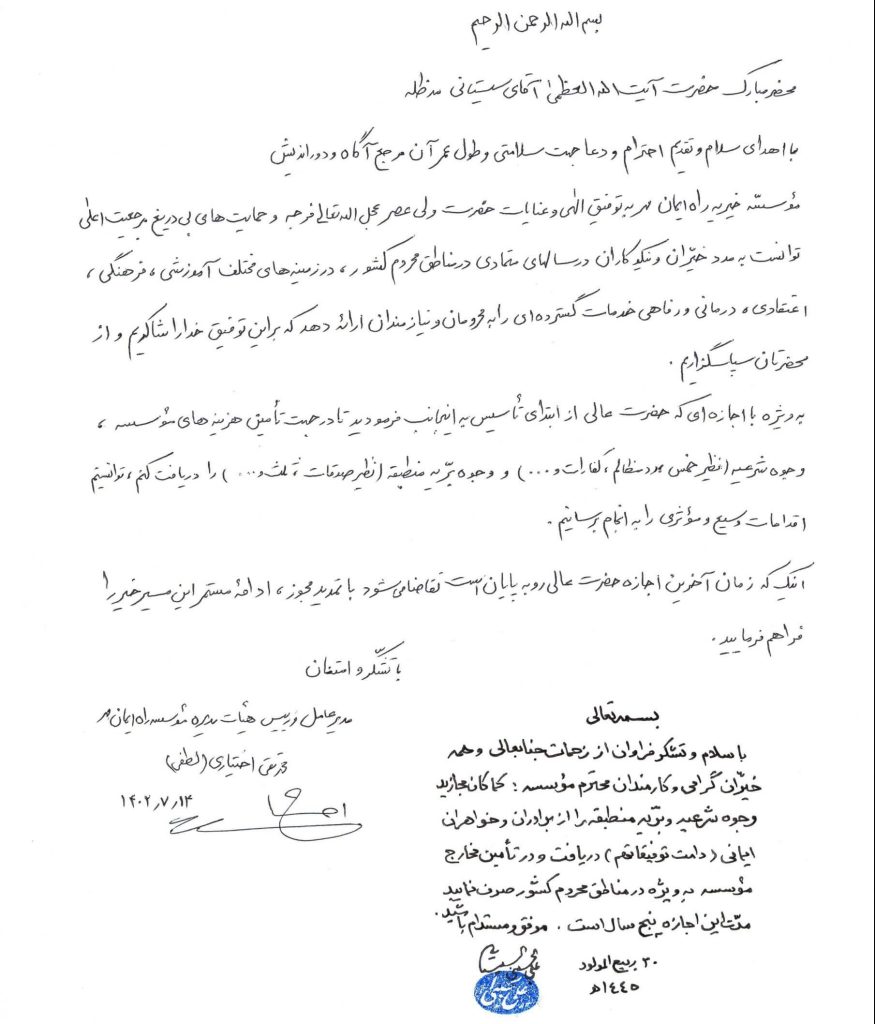 بسم الله الرحمن الرحیم
محضر مبارک حضرت آیت الله العظمیٰ آقای سیستانی مدظله
با اهدای سلام و تقدیم احترام و دعا جهت سلامتی و طول عمر آن مرجع آگاه و دوراندیش
مؤسسّه خیریه راه ایمان مهر به توفیق الهی و عنایات حضرت ولی عصر عجل الله تعالی فرجه و حمایت های بی دریغ مرجعیت اعلی
توانست به مدد خیّران و نیکوکاران در سالهای متمادی در مناطق محروم کشور، در زمینه های مختلف آموزشی، فرهنگی،
اعتقادی، درمانی و رفاهی خدمات گسترده ای را به محرومان و نیازمندان ارائه دهد که بر این توفیق خدا را شاکریم و از
محضرتان سپاسگزاریم.
به ویژه با اجازه ای که حضرت عالی از ابتدای تأسیس به اینجانب فرمودید تا در جهت تأمین هزینه های مؤسسه،
وجوه شرعیه (نظیر خمس، رد مظالم، کفارات و...) و وجوه برّیه منطبقه (نظیر صدقات، ثلث و...) را دریافت کنم، توانستیم
اقدامات وسیع و مؤثری را به انجام برسانیم.
اینک که زمان آخرین اجازه حضرت عالی رو به پایان است تقاضا می شود با تمدید مجوز، ادامهٔ مستمر این مسیر خیر را
فراهم فرمایید.
با تشکّر و امتنان
مدیر عامل و رییس هیأت مدیره مؤسسه راه ایمان مهر
محمد تقی اختیاری (لطفی)
۱۴۰۲,۷,۱۴
بسمه تعالی
با سلام و تشکر فراوان از زحمات جنابعالی و همه
خیّران گرامی و کارمندان محترم مؤسسه: کماکان مجازید
وجوه شرعیه و برّیه منطبقه را از برادران و خواهران
ایمانی (دامت توفیقاتهم) دریافت و در تأمین مخارج
مؤسسه به ویژه در مناطق محروم کشور صرف نمایید
مدّت این اجازه پنج سال است. موفق و مستدام باشید.
۲۰ ربیع المولود
۱۴۴۵ه
علی الحسینی السیستانی